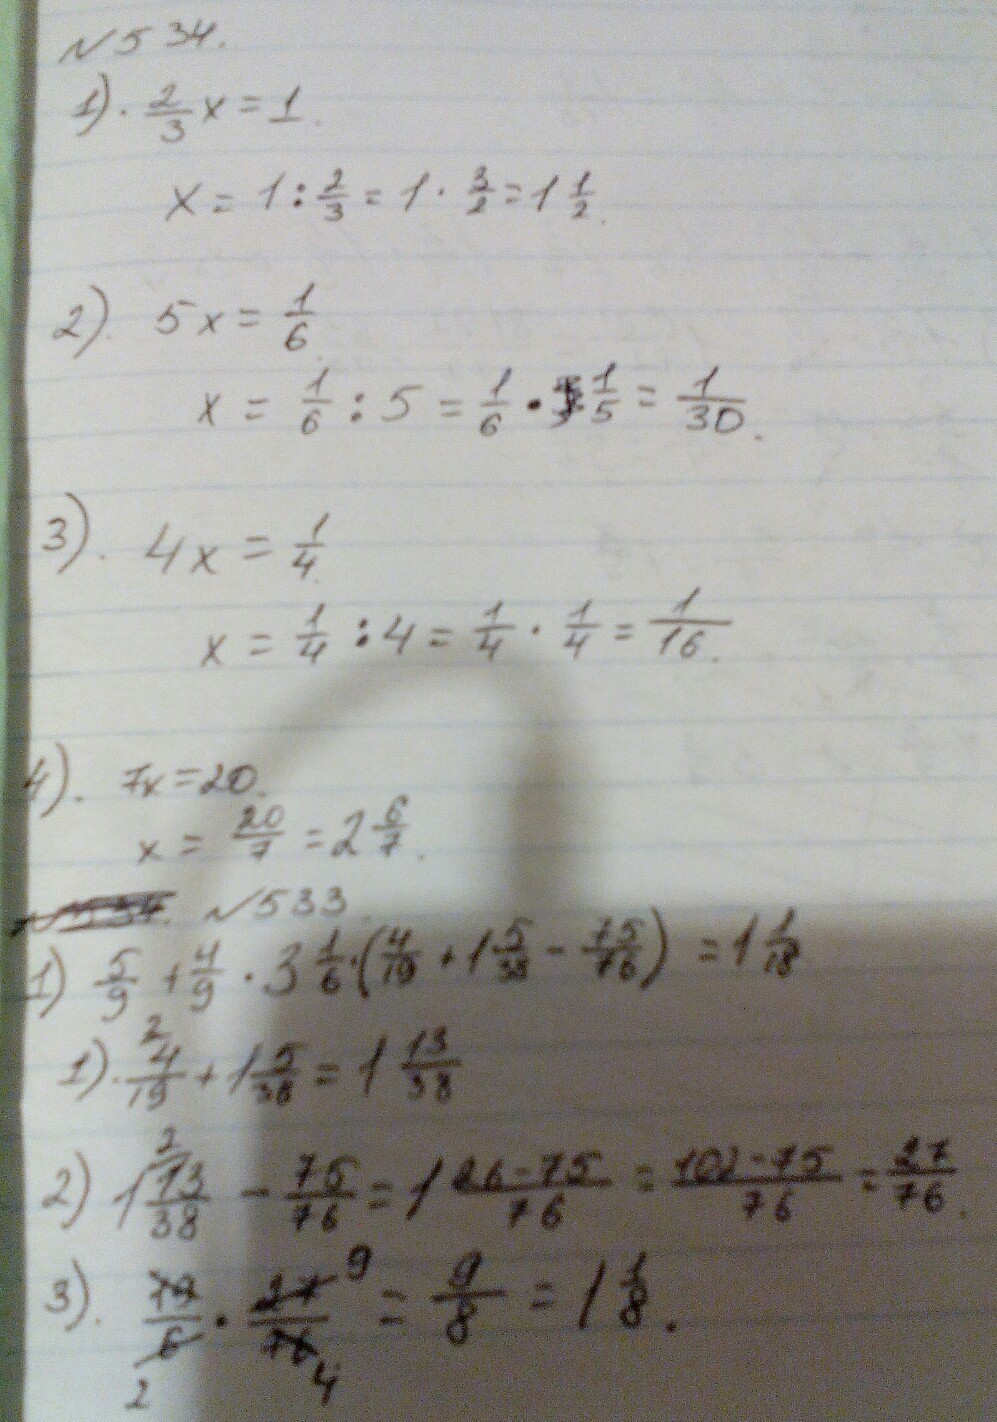 №534.
1). 2/3 x = 1.
x = 1 : 2/3 = 1 · 3/2 = 1 1/2.
2). 5x = 1/6.
x = 1/6 : 5 = 1/6 · 1/5 = 1/30.
3). 4x = 1/4.
x = 1/4 : 4 = 1/4 · 1/4 = 1/16.
4). 7x = 20.
x = 20/7 = 2 6/7.
№533.
1) 5/9 + 4/9 · 3 1/6 · (4/19 + 1 5/38 − 75/76) = 1 1/18
1). 4/19 + 1 5/38 = 1 13/38
2) 1 13/38 − 75/76 = 1 26−75/76 = 102−75/76 = 27/76.
3). 19/6 · 27/76 = 9/8 = 1 1/8.